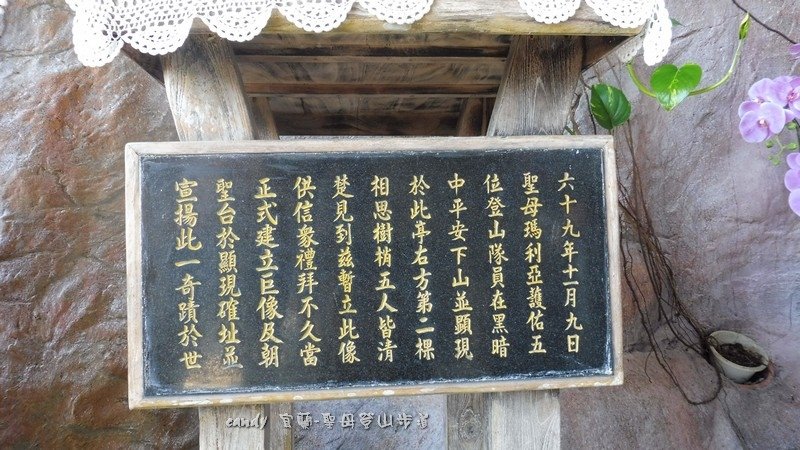 六十九年十一月九日
聖母瑪利亞護佑五
位登山隊員在黑暗
中平安下山並顯現
於此亭右方第二棵
相思樹梢五人皆清
楚見到茲暫立此像
供信衆禮拜不久當
正式建立巨像及朝
聖台於顯現確址並
宣揚此一奇蹟於世
candy 宜蘭-聖母登山步道